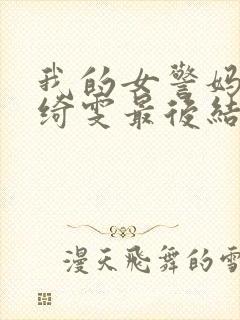 我的女警妈
绮雯最后结
漫天飞舞的雪